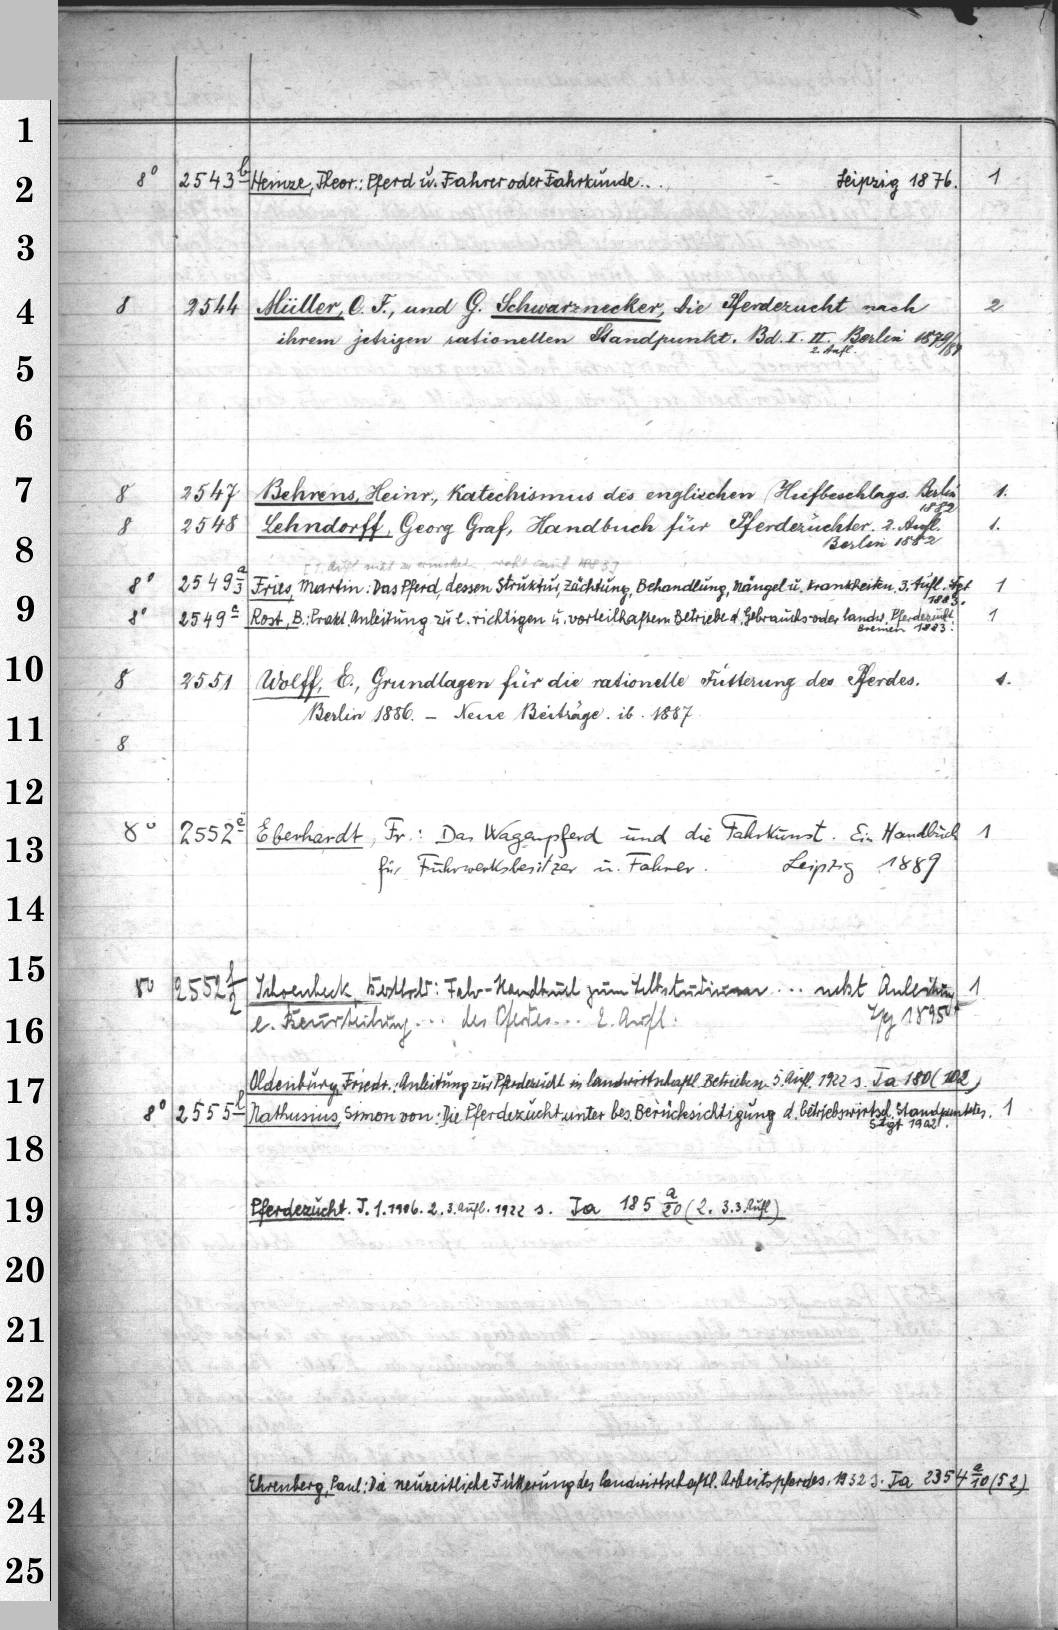 1
2
3
4
5
6
7
8
9
10
11
12
13
14
15
16
17
18
19
20
21
22
23
24
25
8° 2543 b Heinze, Theor.: Pferd u. Fahrer oder Fahrkunde... Leipzig 1876. 1
8 2544 Müller, O. F., und G. Schwarznecker, Die Pferdezucht nach 2
ihrem jetzigen rationellen Standpunkt. Bd. I. II. Berlin 1879/81
2. Aufl.
8 2547 Behrens, Heinr., Katechismus des englischen Hufbeschlags. Berlin 1.
1882
8 2548 Lehndorff, Georg Graf, Handbuch für Pferdezüchter. 2. Aufl. 1.
Berlin 1882
8° 2549 a/3 Fries, Martin: Das Pferd, dessen Struktur, Züchtung, Behandlung, Mängel u. Krankheiten. 3. Aufl. Stgt 1
1883.
8° 2549 c Rost, B.: Prakt. Anleitung zu e. richtigen u. vorteilhaften Betriebe d. Gebrauchs- oder landw. Pferdezucht. 1
Bremen 1883.
8 2551 Wolff, E., Grundlagen für die rationelle Fütterung des Pferdes. 1.
Berlin 1886. – Neue Beiträge. ib. 1887
8
8° 2552 e Eberhardt, Fr.: Das Wagenpferd und die Fahrkunst. Ein Handbuch 1
für Fuhrwerksbesitzer u. Fahrer. Leipzig 1889
8° 2552 f/2 Schoenbeck, : Fahr-Handbuch zum Selbststudium ... nebst Anleitung 1
e. Beurteilung ... des Pferdes ... 2. Aufl. Lpg 1895
Oldenburg, Friedr.: Anleitung zur Pferdezucht in landwirtschaftl. Betrieben. 5. Aufl. 1922 s. Ta 180 (102)
8° 2555 f Nathusius, Simon von: Die Pferdezucht unter bes. Berücksichtigung d. betriebswirtsch. Standpunktes. 1
Stgt 1902.
Pferdezucht. T. 1. 1906. 2. 3. Aufl. 1922 s. Ta 185 a/20 (2. 3.3. Aufl)
Ehrenberg, Paul: Die neuzeitliche Fütterung des landwirtschaftl. Arbeitspferdes. 1932 s. Ta 2354 a/10 (52)